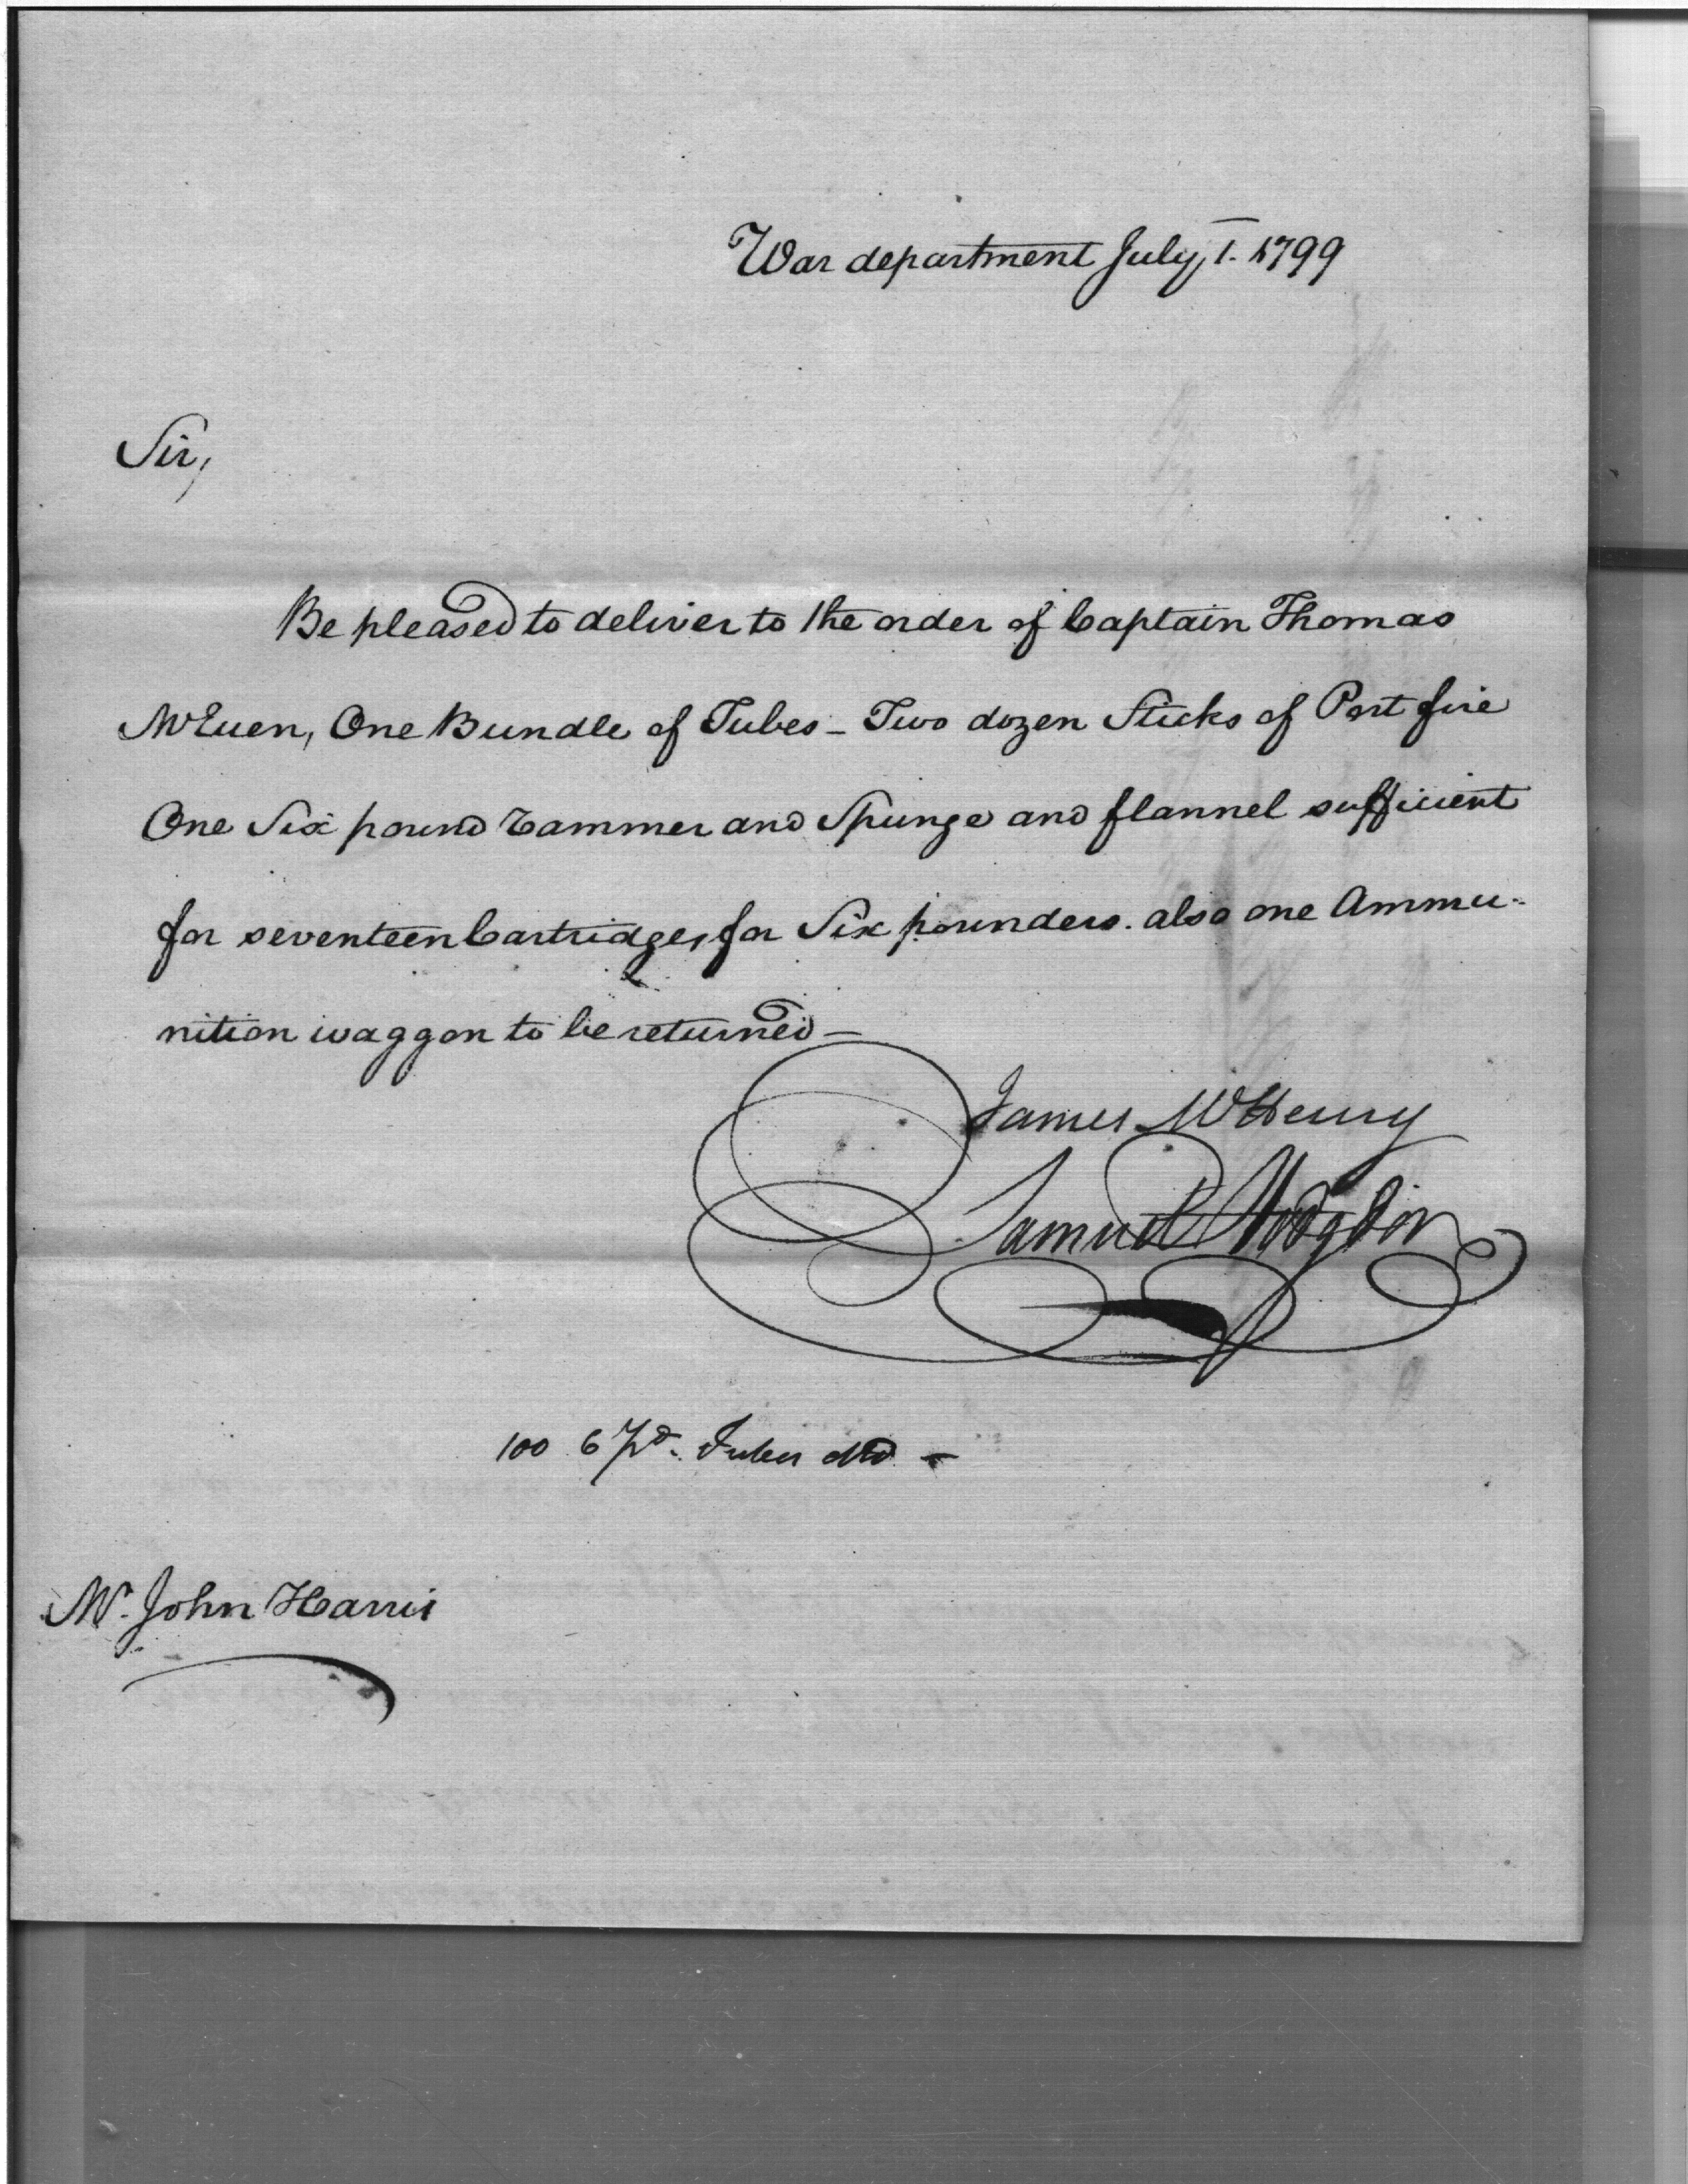 War department July 1. 1799
Sir,
Be pleased to deliver to the order of Captain Thomas
McEuen, One Bundle of Tubes – Two dozen Sticks of Port fire
One Six pound rammer and Spunge and flannel sufficient
for seventeen Cartridges for Six pounders. also one Ammu-
nition waggon to be returned –
James McHenry
Samuel Hodgdon
100 6 pd. Tubes dd –
Mr. John Harris